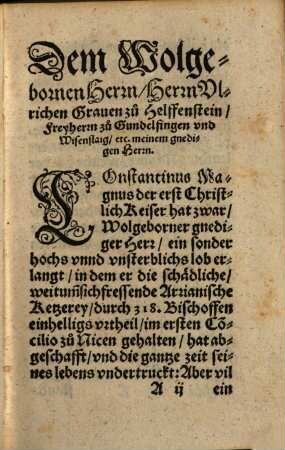 Dem Wolge-
bornen Herrn/Herrn Vl-
richen Grauen zů Helffenstein/
Freyherrn zů Gundelfingen vnd
Wisenstaig/etc. meinem gnedi-
gen Herrn.
COnstantinus Ma-
gnus der erst Christ-
lich Keiser hat zwar/
Wolgeborner gnedi-
ger Herr/ein sonder
hochs vnnd vnsterblichs lob er-
langt/in dem er die schädliche/
weitum̃sichfressende Arrianische
Ketzerey/durch 318. Bischoffen
einhelligs vrtheil/im ersten Cõ-
cilio zů Nicen gehalten/hat ab-
geschafft/vnd die gantze zeit sei-
nes lebens vndertruckt: Aber vil
A ij ein